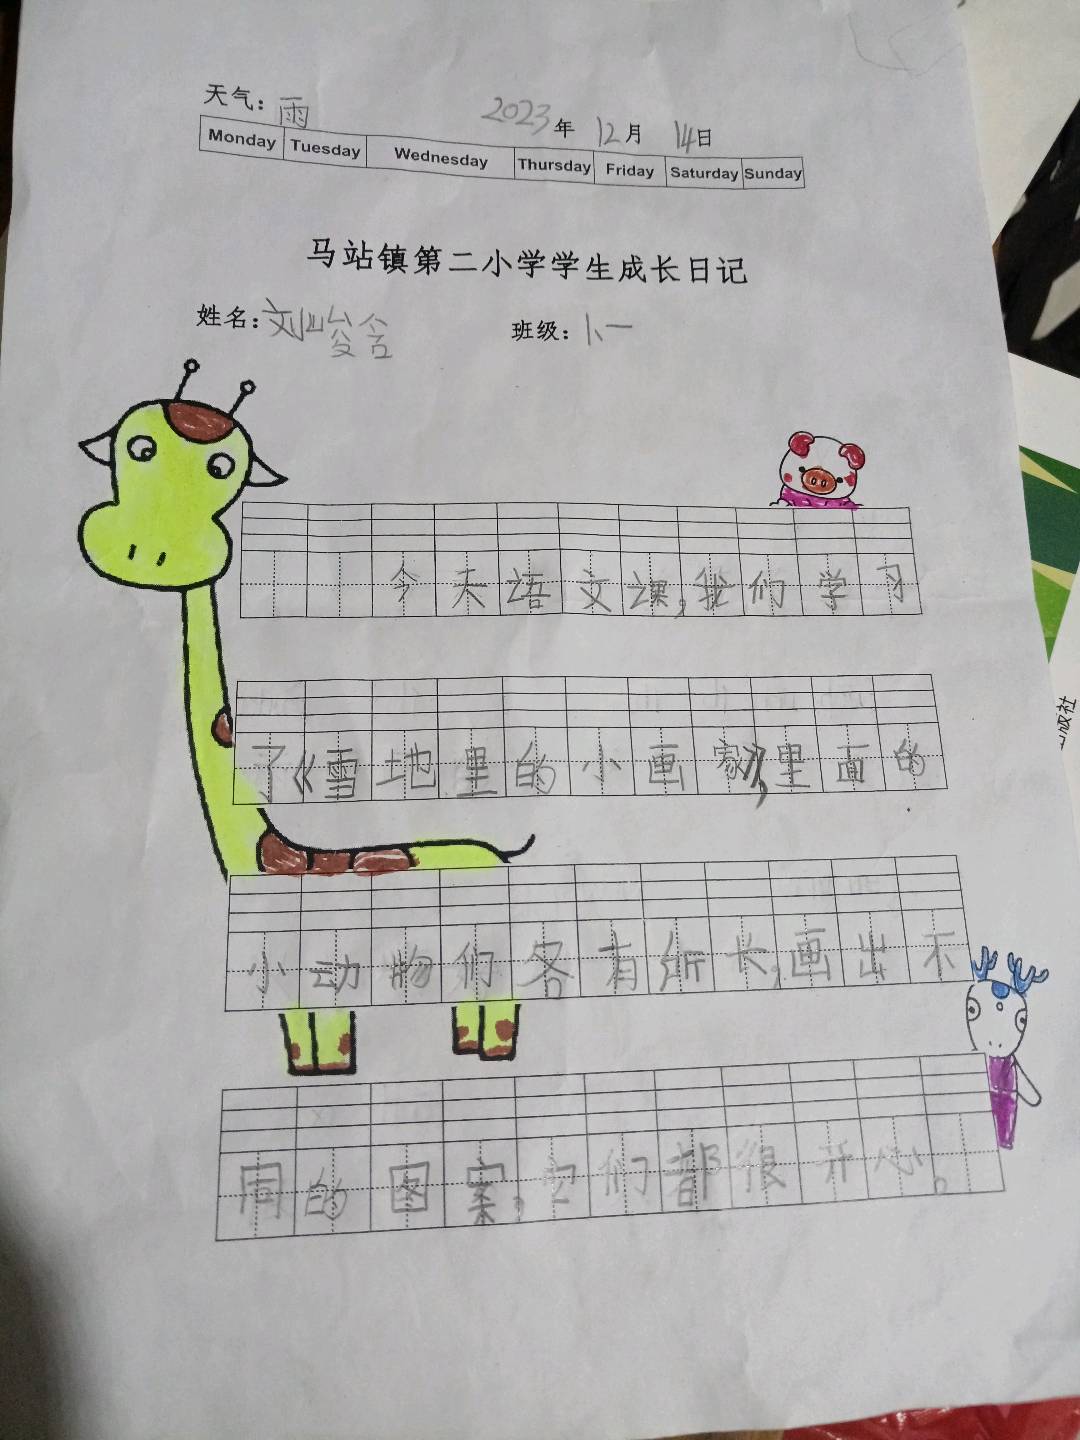 天气：雨 2023年 12月 14日
Monday Tuesday Wednesday Thursday Friday Saturday Sunday
马站镇第二小学学生成长日记
姓名：刘峻含 班级：
今天语文课，我们学习
了《雪地里的小画家》，里面的
小动物们各有所长，画出不
同的图案，它们都很开心。
版社